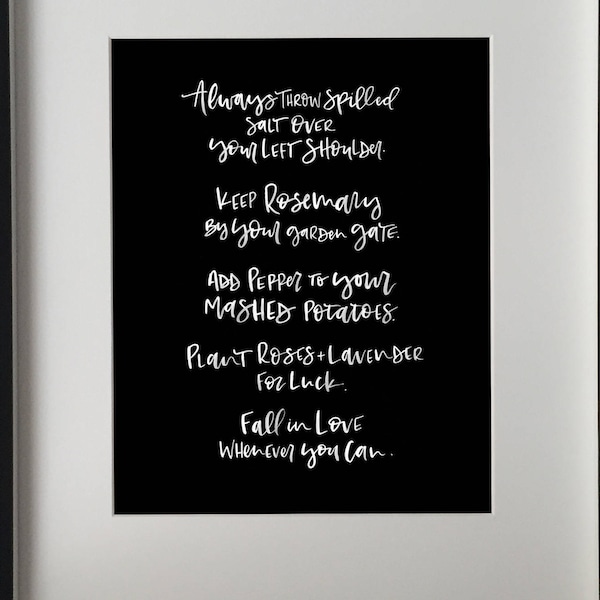 Always THROW Spilled
SALT OVER
your LEFT Shoulder.
KEEP Rosemary
By your garden gate.
ADD Pepper to your
MASHED Potatoes.
Plant Roses + Lavender
For Luck.
Fall in Love
Whenever you Can.